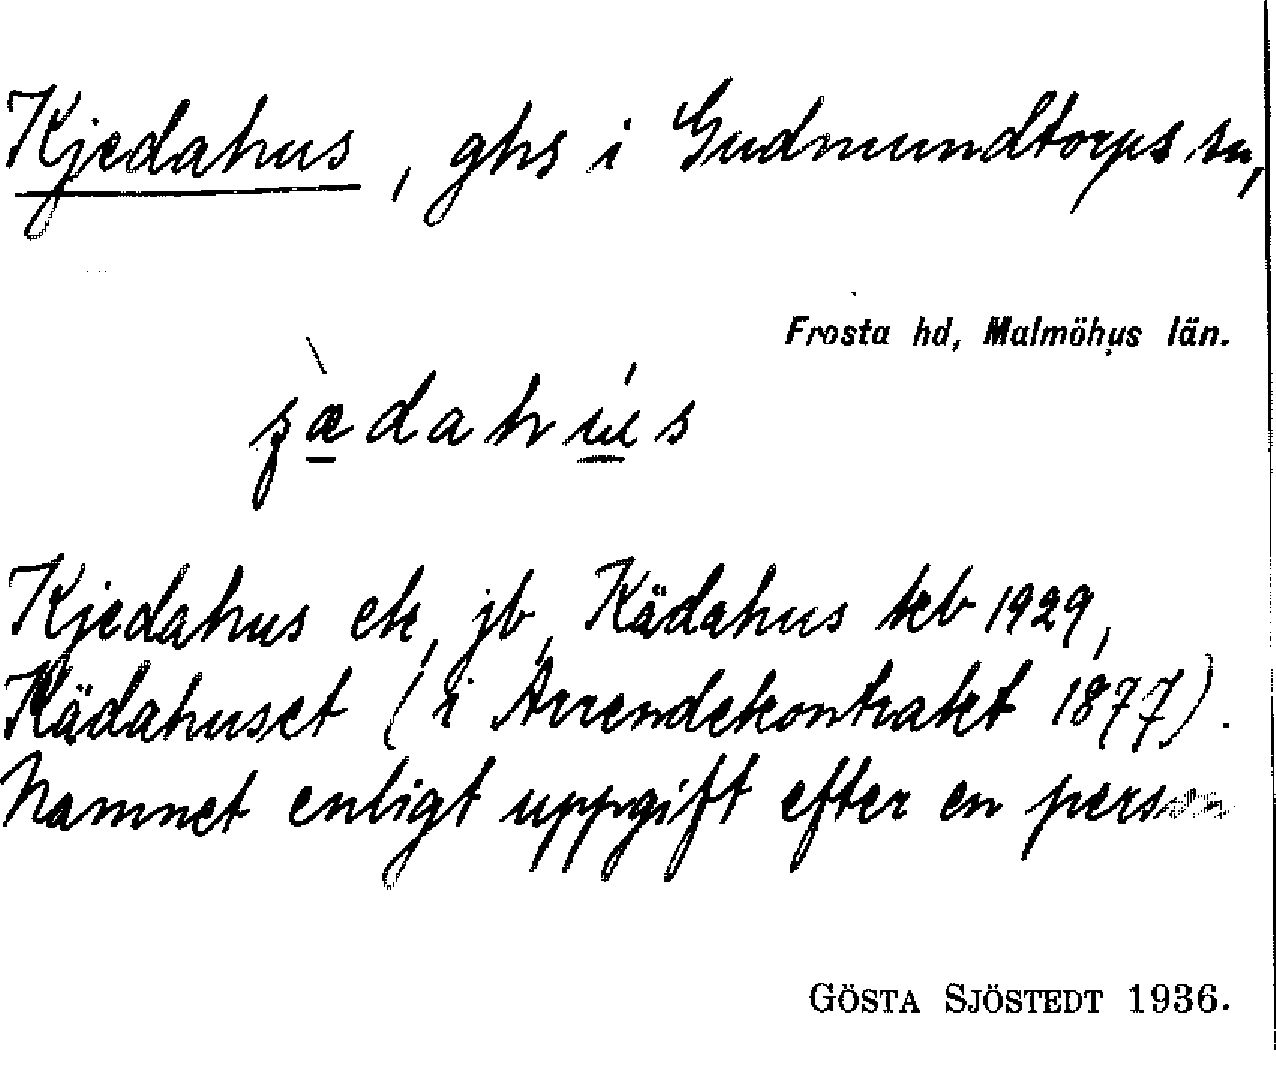 Kjedahus, ghs i Gudmundtorps sn,
Frosta hd, Malmöhus län.
Kjedahus ek, jb, Kädahus kb 1929,
Kädahuset (i Arrendekontrakt 1877).
Namnet enligt uppgift efter en person
GÖSTA SJÖSTEDT 1936.